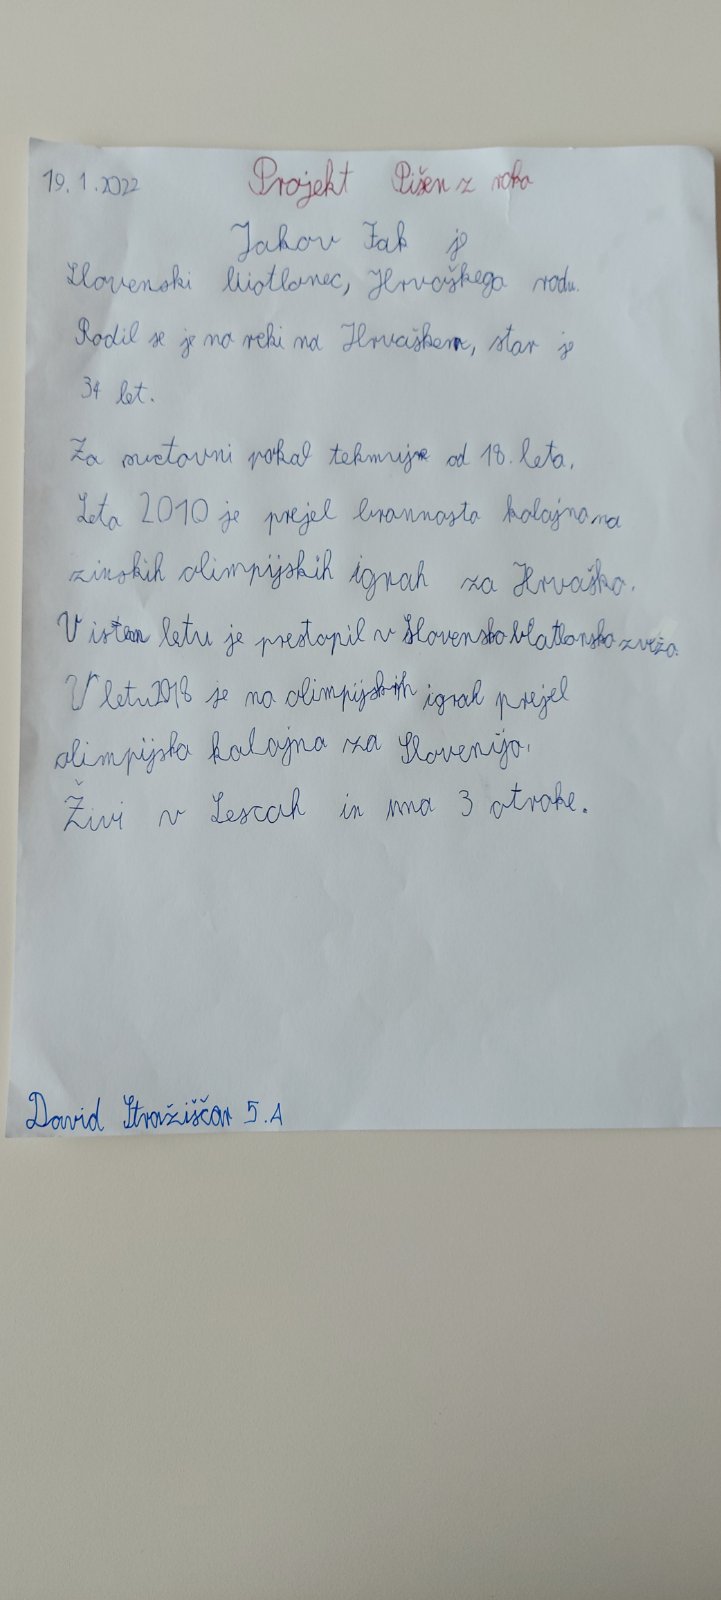 19.1.2022 Projekt Pišen z roko
Jakov Fak je
Slovenski biatlonec, Hrvaškega rodu.
Rodil se je na reki na Hrvaškem, star je
34 let.
Za svetovni pokal tekmuje od 18. leta.
Leta 2010 je prejel bronnasto kolajno na
zimskih olimpijskih igrah za Hrvaško.
V istem letu je prestopil v Slovensko biatlonsko zvezo.
V letu 2018 je na olimpijskih igrah prejel
olimpijsko kolajno za Slovenijo.
Živi v Lescah in ima 3 otroke.
David Stražiščar 5.A